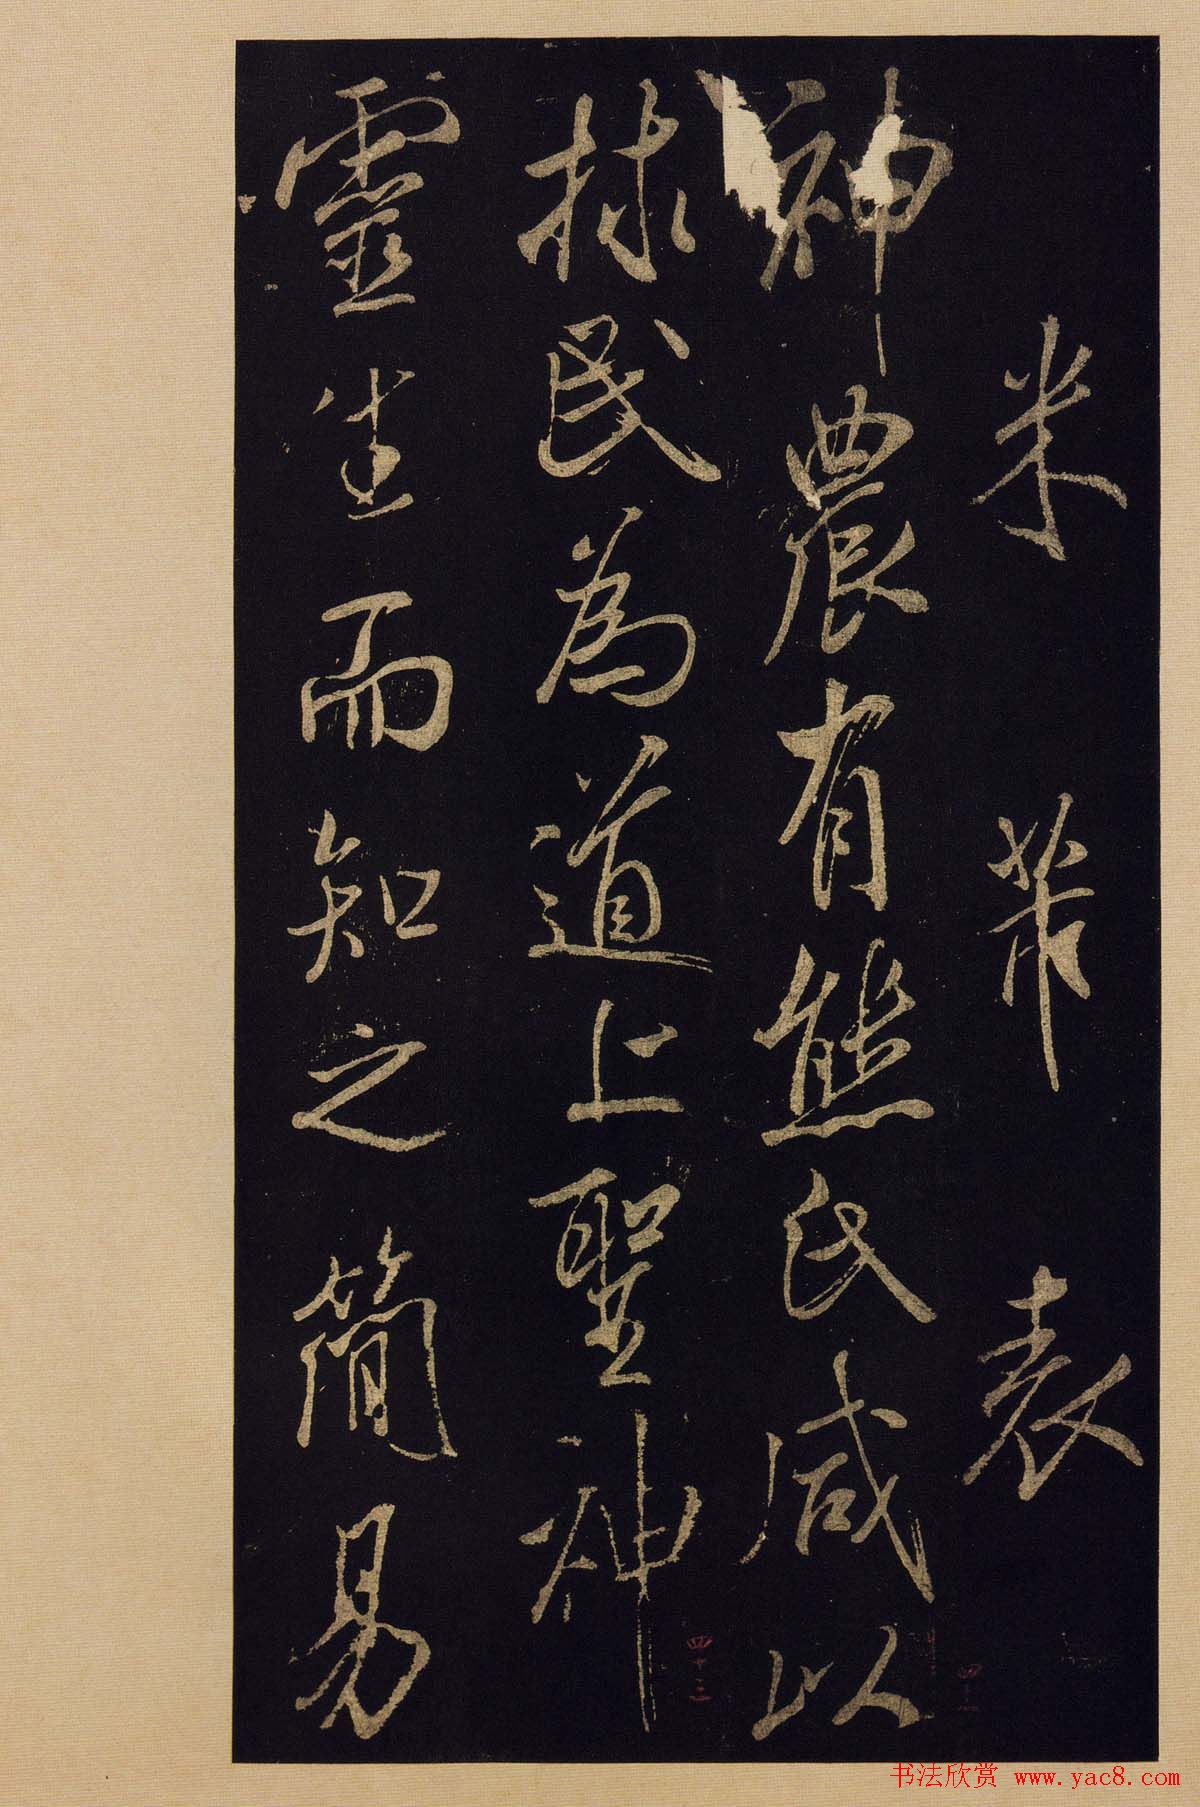 米芾表
神農有熊氏咸以
捄民為道上聖神
四十三
靈生而知之簡易
书法欣赏 www.yac8.com